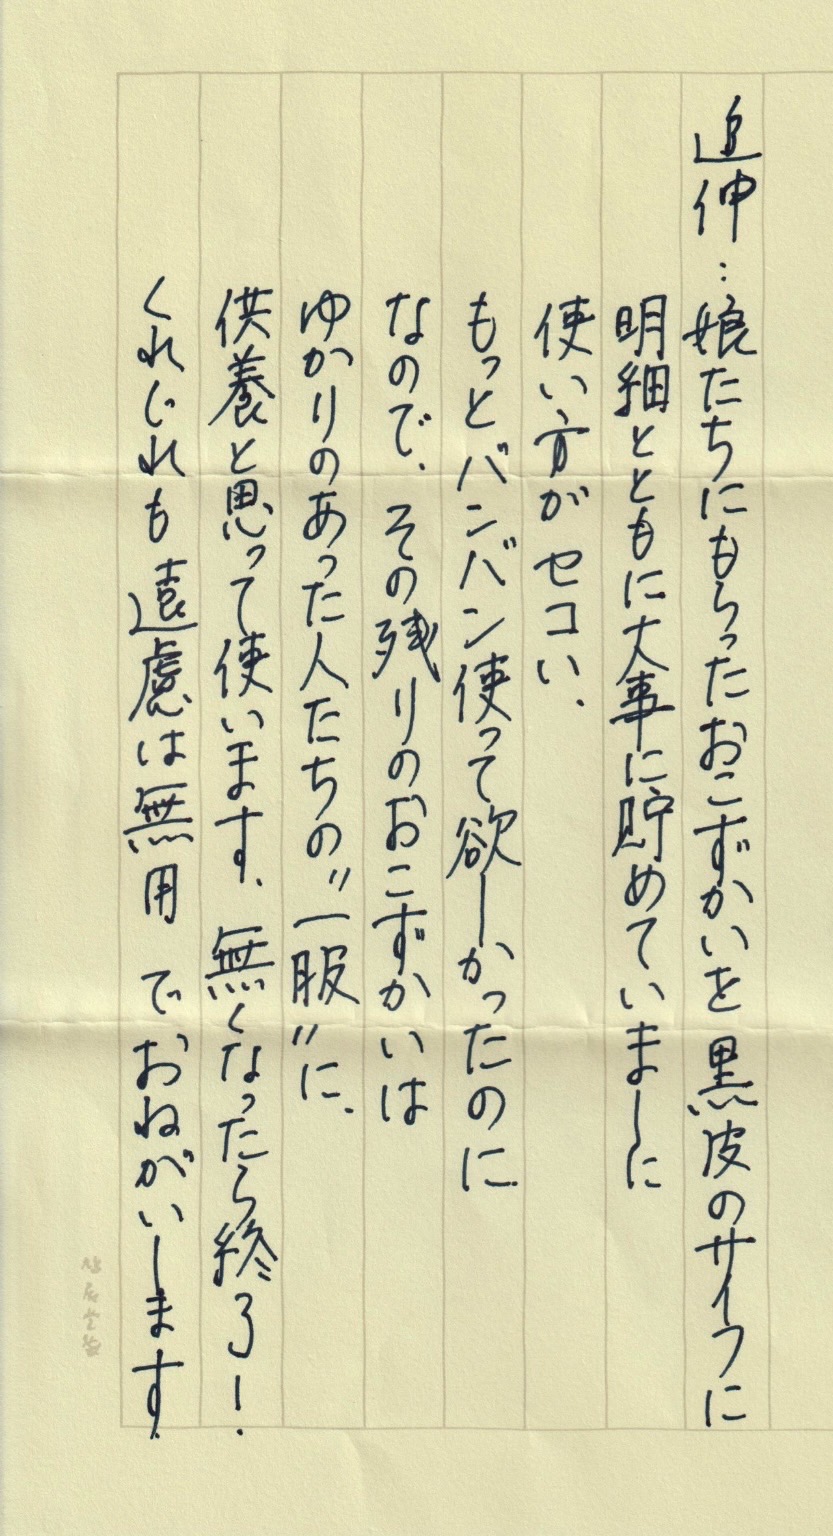 追伸:娘たちにもらったおこずかいを黒皮のサイフに
明細とともに大事に貯めていました
使い方がセコい、
もっとバンバン使って欲しかったのに
なので、その残りのおこずかいは
ゆかりのあった人たちの〝一服〟に、
供養と思って使います、無くなったら終了!
くれじれも遠慮は無用でおねがいします